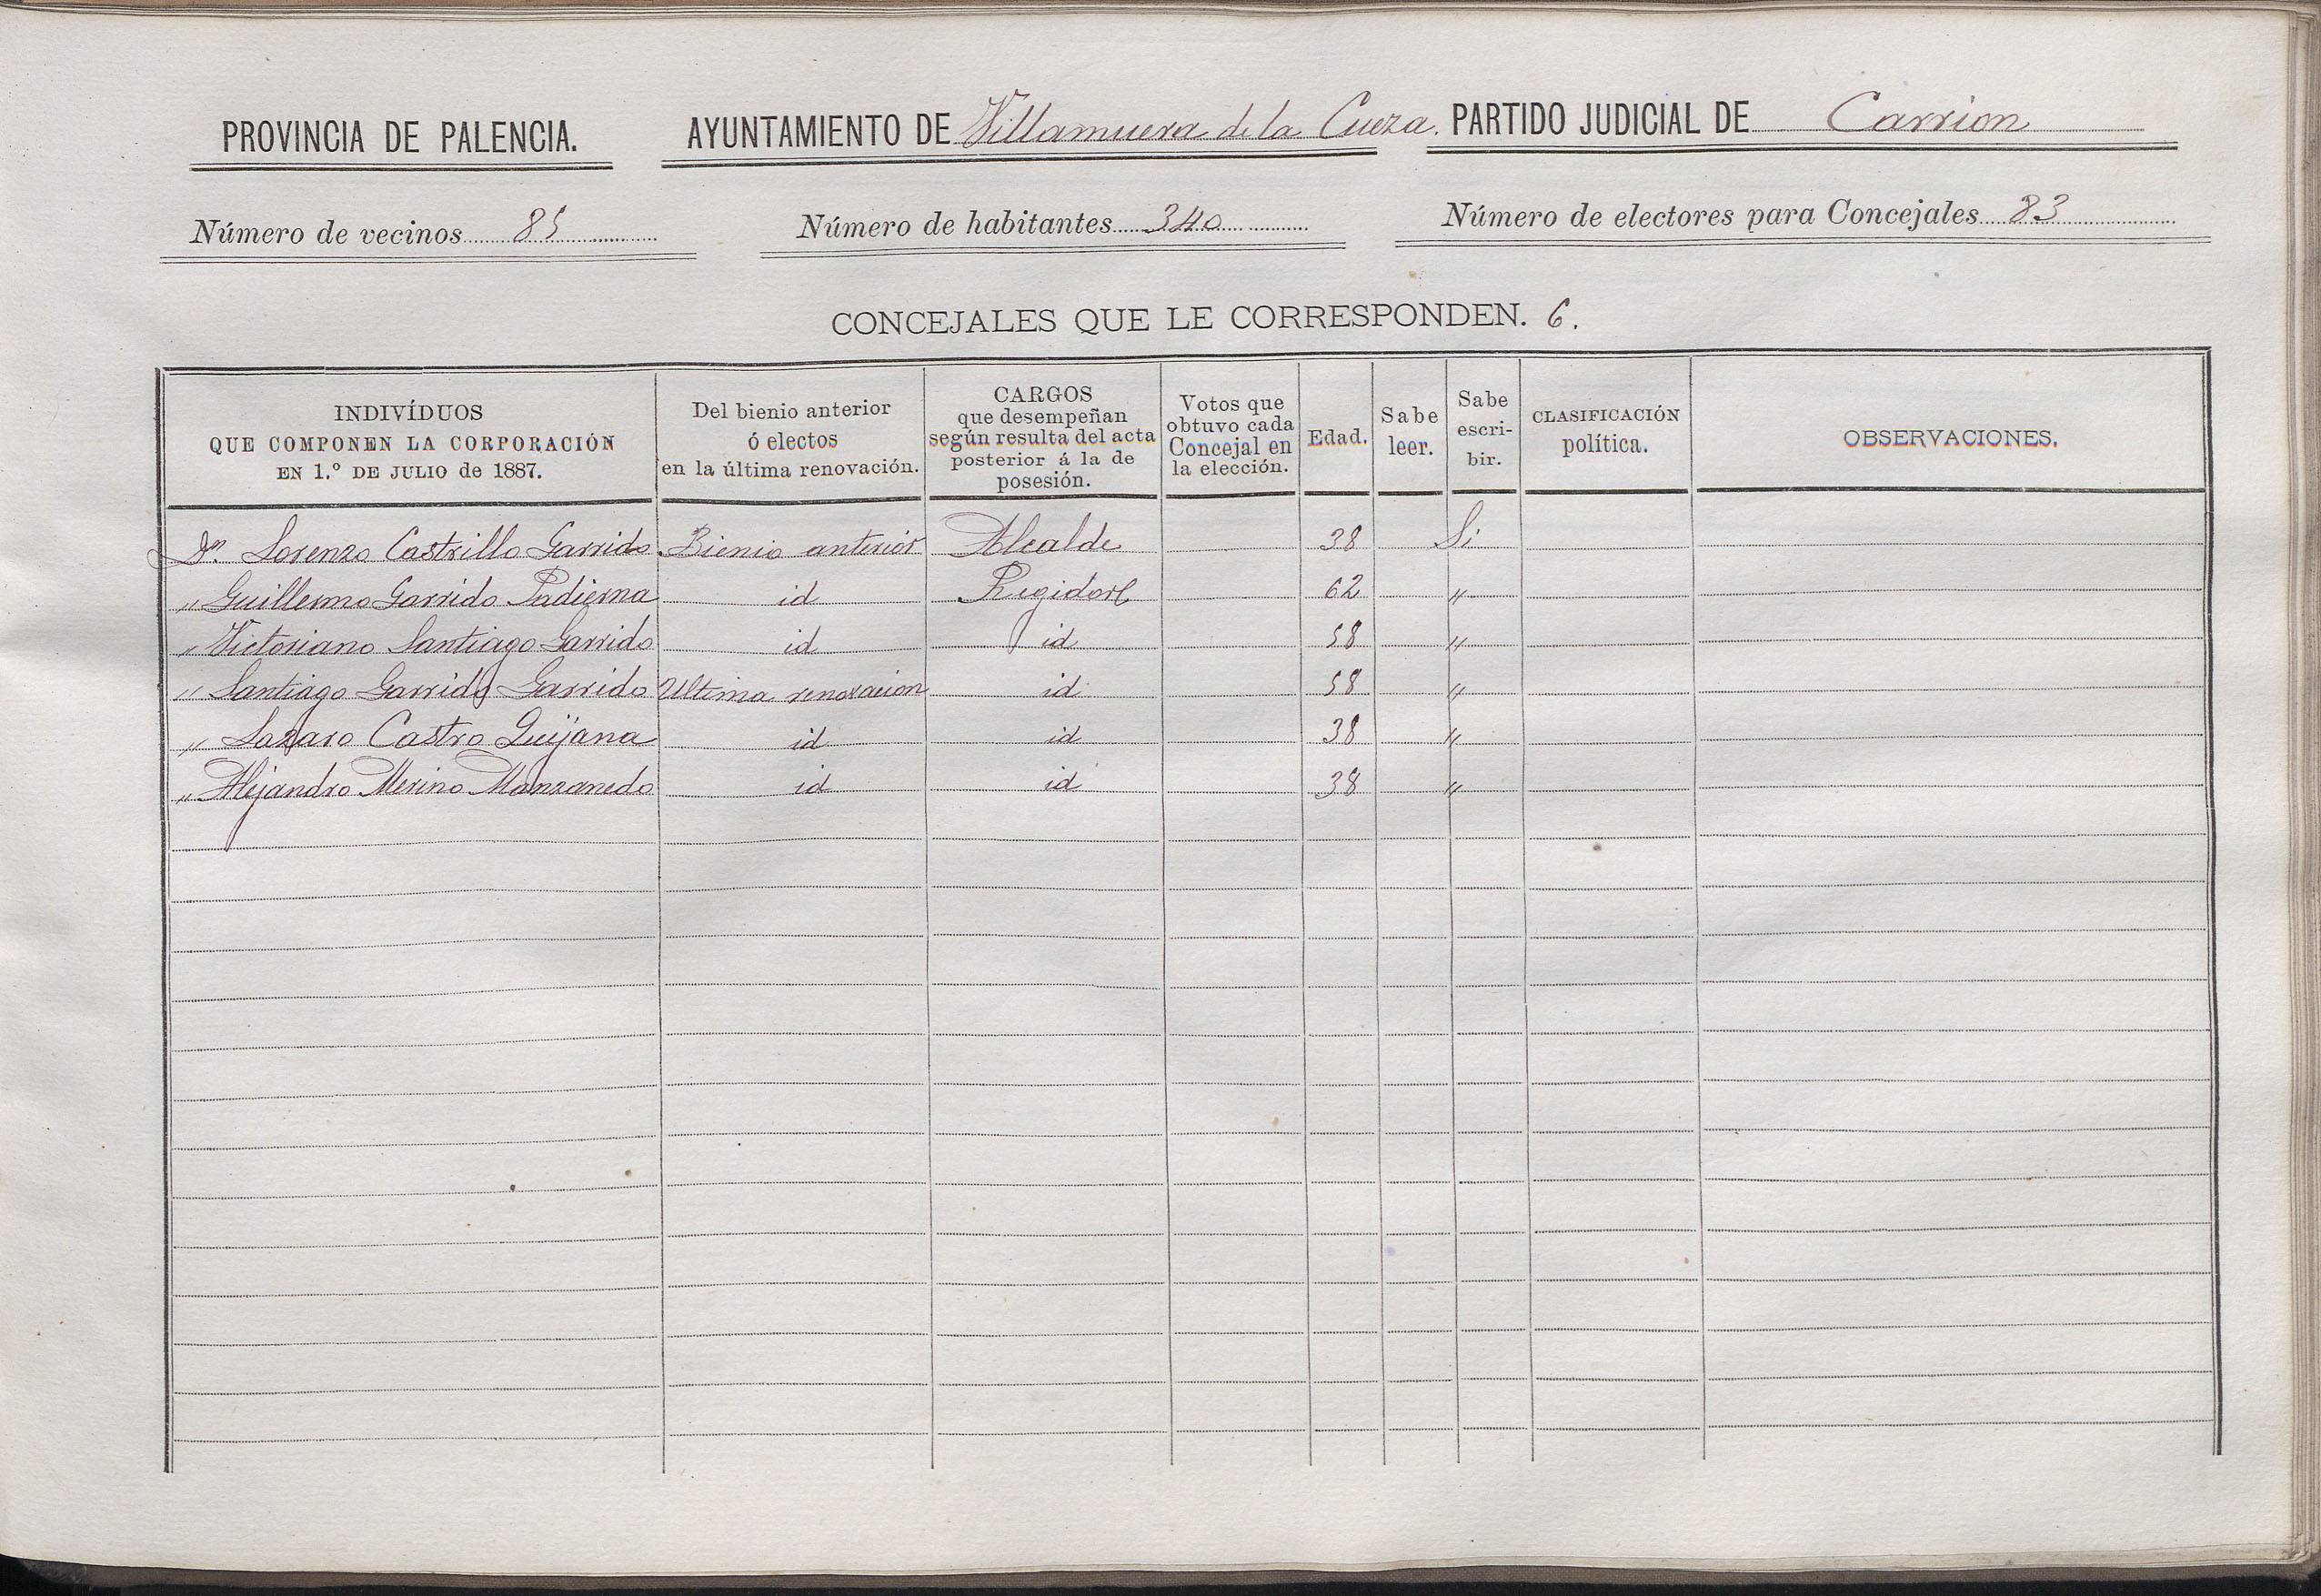 PROVINCIA DE PALENCIA. AYUNTAMIENTO DE Villamuera de la Cueza. PARTIDO JUDICIAL DE Carrion
Número de vecinos 85 Número de habitantes 340 Número de electores para Concejales 83
CONCEJALES QUE LE CORRESPONDEN. 6.
INDIVÍDUOS
QUE COMPONEN LA CORPORACIÓN
EN 1.º DE JULIO de 1887.
Del bienio anterior
ó electos
en la última renovación.
CARGOS
que desempeñan
según resulta del acta
posterior á la de
posesión.
Votos que
obtuvo cada
Concejal en
la elección.
Edad.
Sabe
leer.
Sabe
escri-
bir.
CLASIFICACIÓN
política.
OBSERVACIONES.
Dn. Lorenzo Castrillo Garrido Bienio anterior Alcalde 38 Si
" Guillermo Garrido Padierna id Regidor 62 "
" Victoriano Santiago Garrido id id 58 "
" Santiago Garrido Garrido Ultima renovacion id 58 "
" Lazaro Castro Quijana id id 38 "
" Alejandro Merino Manzanedo id id 38 "